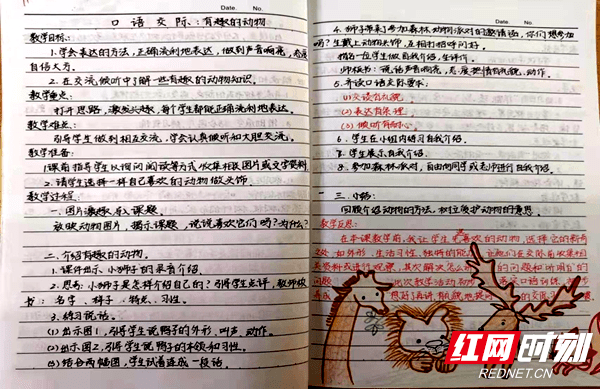 Date. No.
口语交际:有趣的动物
教学目标:
1.学会表达的方法,正确流利地表达,做到声音响亮,态度
自信大方。
2.在交流、倾听中了解一些有趣的动物知识。
教学重点:
打开思路,激发兴趣,每个学生都能正确流利地表达
教学难点:
引导学生做到相互交流,学会认真倾听和大胆交流。
教学准备:
1.课前指导学生以询问阅读等方式收集相关图片或文字资料
2.请学生选择一样自己喜欢的动物做头饰
教学过程:
一.图片激趣,导入课题.
放映动物图片,揭示课题,说说喜欢它们吗?为什么?
二.介绍有趣的动物。
1.课件出示小狮子的录音介绍。
2.思考:小狮子是怎样介绍自己的?引导学生评,教师板
书:名字、样子、特点、习性。
3.练习说话。
(1)出示图1,引导学生说鸭子的外形、叫声、动作。
(2)出示图2,引导学生说鸭子的本领和习性。
(3)结合两幅图,学生试着连成一段话。
Date. No.
4.狮子带来了参加森林动物派对的邀请函,你们想参加
吗?生戴上动物头饰,互相打招呼问好。
指名一个学生做自我介绍,生评价。
师板书:说话声音响亮,态度热情有礼貌,动作。
5.开读口语交际要求:
(1)交谈有礼貌
(2)表达有条理
(3)倾听有耐心。
6.学生在小组内练习自我介绍。
7.学生展示自我介绍。
8.参加森林派对,自由向同学或老师进行自我介绍。
三.小结:
回顾介绍动物的方法,树立爱护动物的意思
教学反思:
在本课教学前,我让学生 喜欢的动物,选择它的新奇
之处 如外形、生活习性、独特的能 让他们在交际前收集相
关资料或进行观察,其次解决怎么 的问题和听明白的
问题 出次教学活动 口语训练
养成 想好再讲、有礼貌地 的交
红网时刻
REDNET.CN